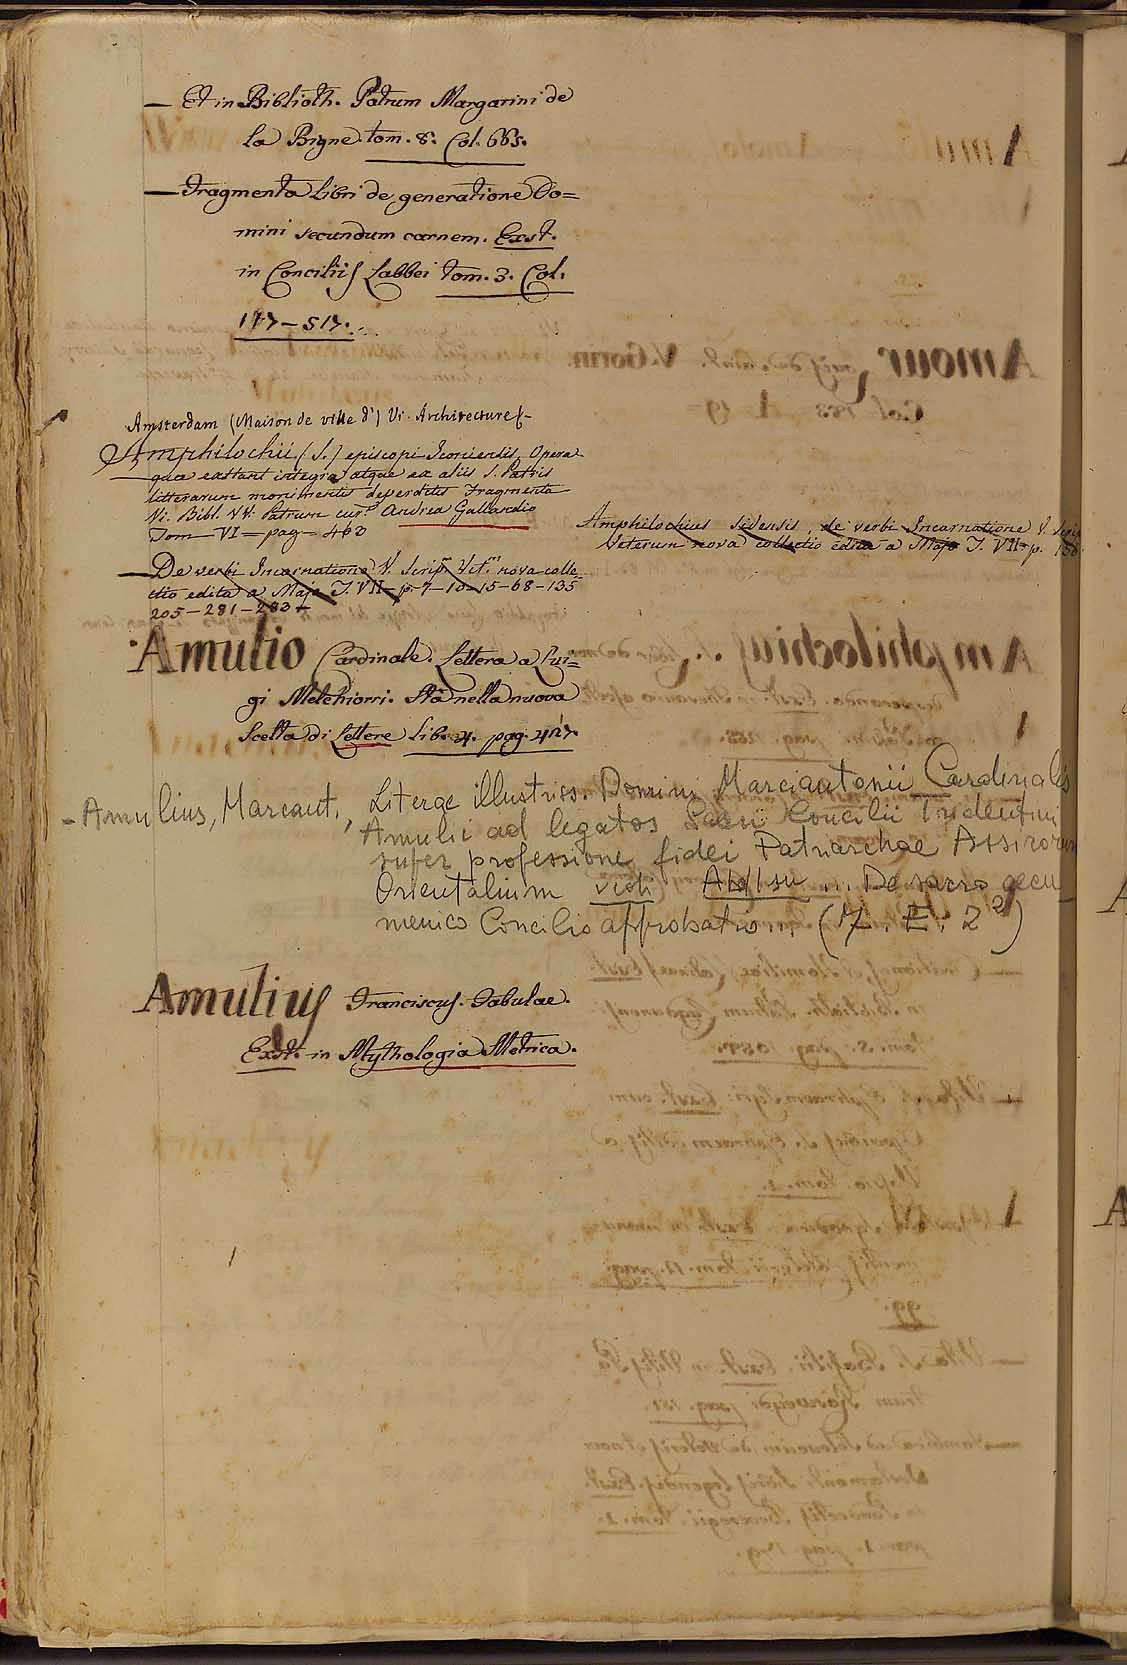 — Et in Biblioth. Patrum Margarini de
la Bigne. tom. 8. Col. 665.
— Fragmenta Libri de generatione Do=
mini secundum carnem. Exst.
in Conciliis Labbei tom. 3. Col.
517.
Amsterdam (Maison de ville d') Vi. Architecture
Amphilochii (S.) episcopi Iconiensis Opera
quae exstant integra atque ex aliis S. Patris
litterarum monimentis deperditis Fragmenta
Vi. Bibl. VV. Patrum cur. Andrea Gallandio
Tom — VI — pag — 463
Amphilochius Sidensis, de verbi Incarnatione V. Scrip
Veterum nova collectio edita a Majo T. VII — p.
— De verbi Incarnatione V. Scrip. Vet. nova colle=
ctio edita a Majo T. VII — p. 7 — 10 — 15 — 68 — 135
205 — 281 — 283
Amulio Cardinale. Lettera a Lui=
gi Melchiorri. Sta nella nuova
Scelta di Lettere Lib. 4. pag. 427.
- Amulius, Marcant., Literae illustriss. Domini Marciantonii Cardinalis
Amulii ad legatos Sacri Concilii Tridentini
super professione fidei Patriarchae Assirorum
Orientalium vidi Abdisu ... De sacro oecu
menico Concilio approbatio ... (7. E. 2)
Amulius Franciscus. Fabulae.
Exst. in Mythologia Metrica.